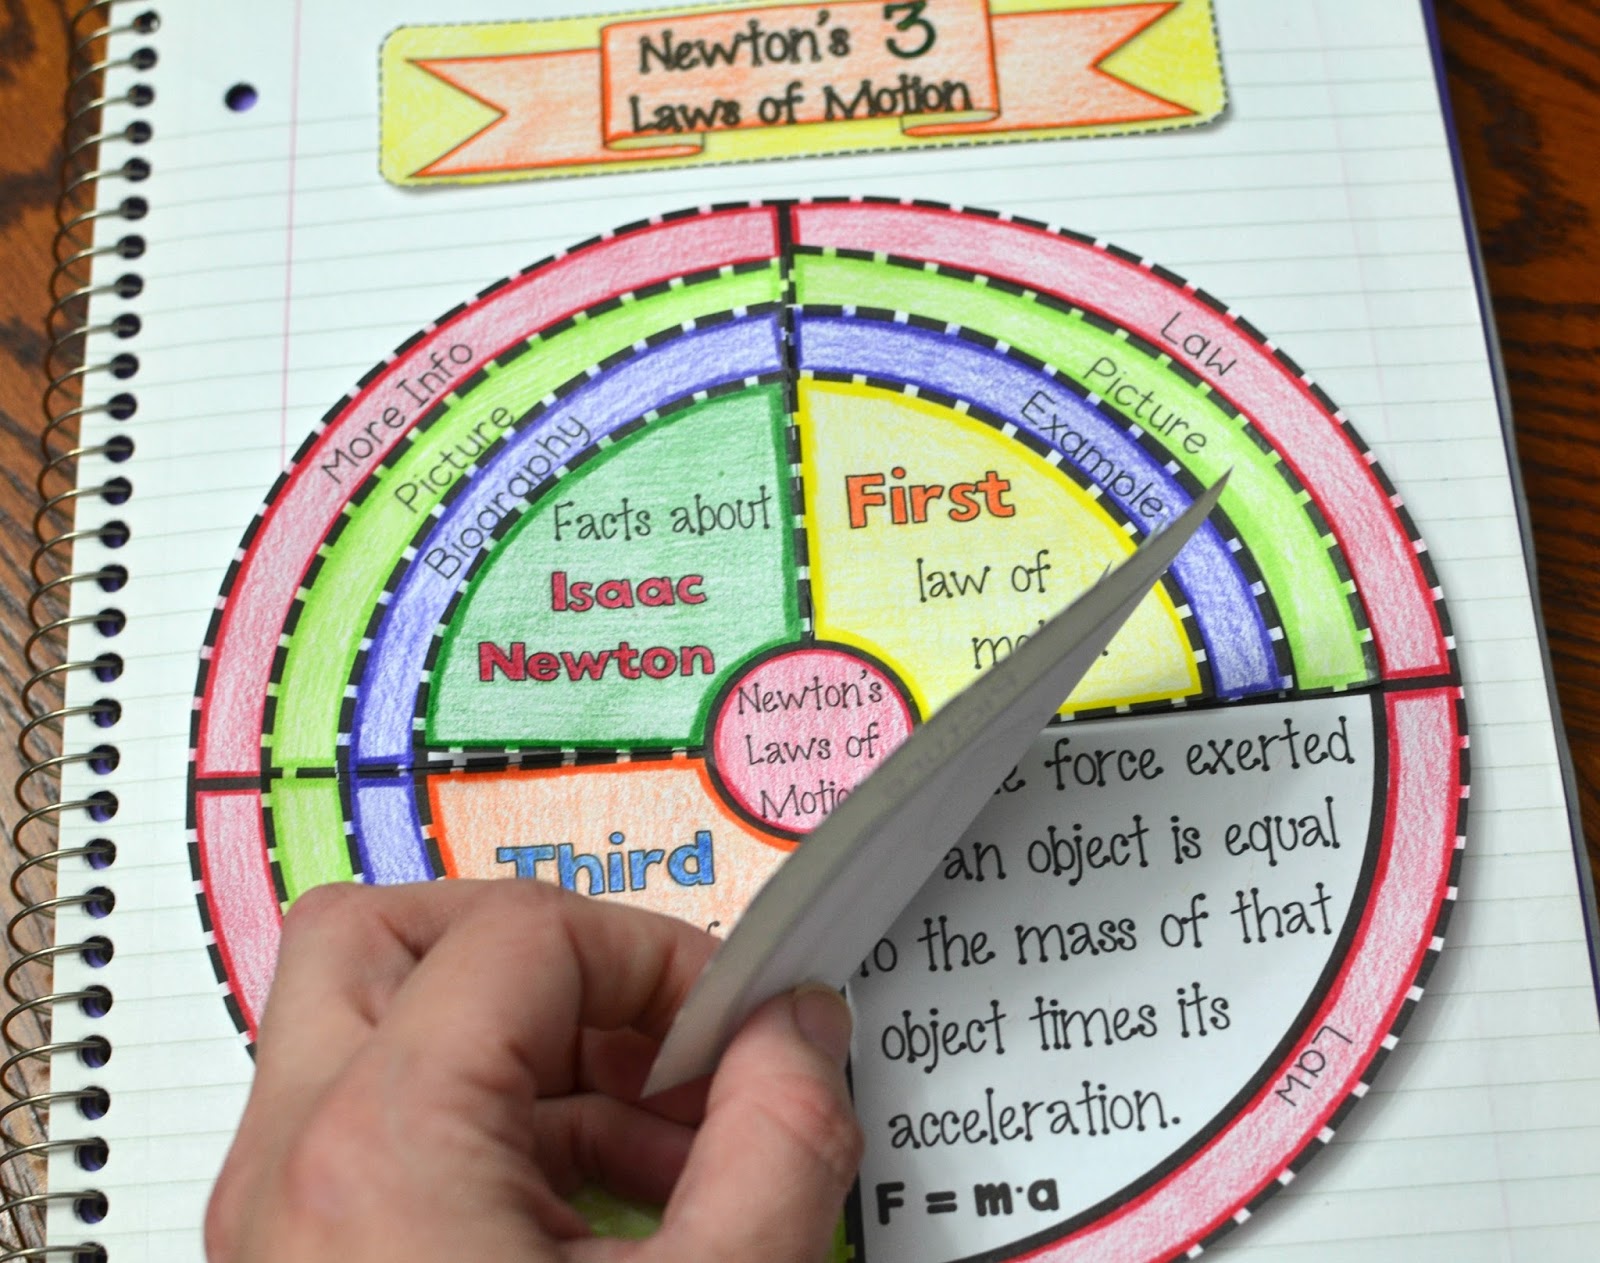 Newton's 3
Laws of Motion
More Info
Picture
Biography
Facts about
Isaac
Newton
Law
Picture
Example
First
law of
Newton's
Laws of
Third
force exerted
an object is equal
to the mass of that
object times its
acceleration.
F = m·a
Law